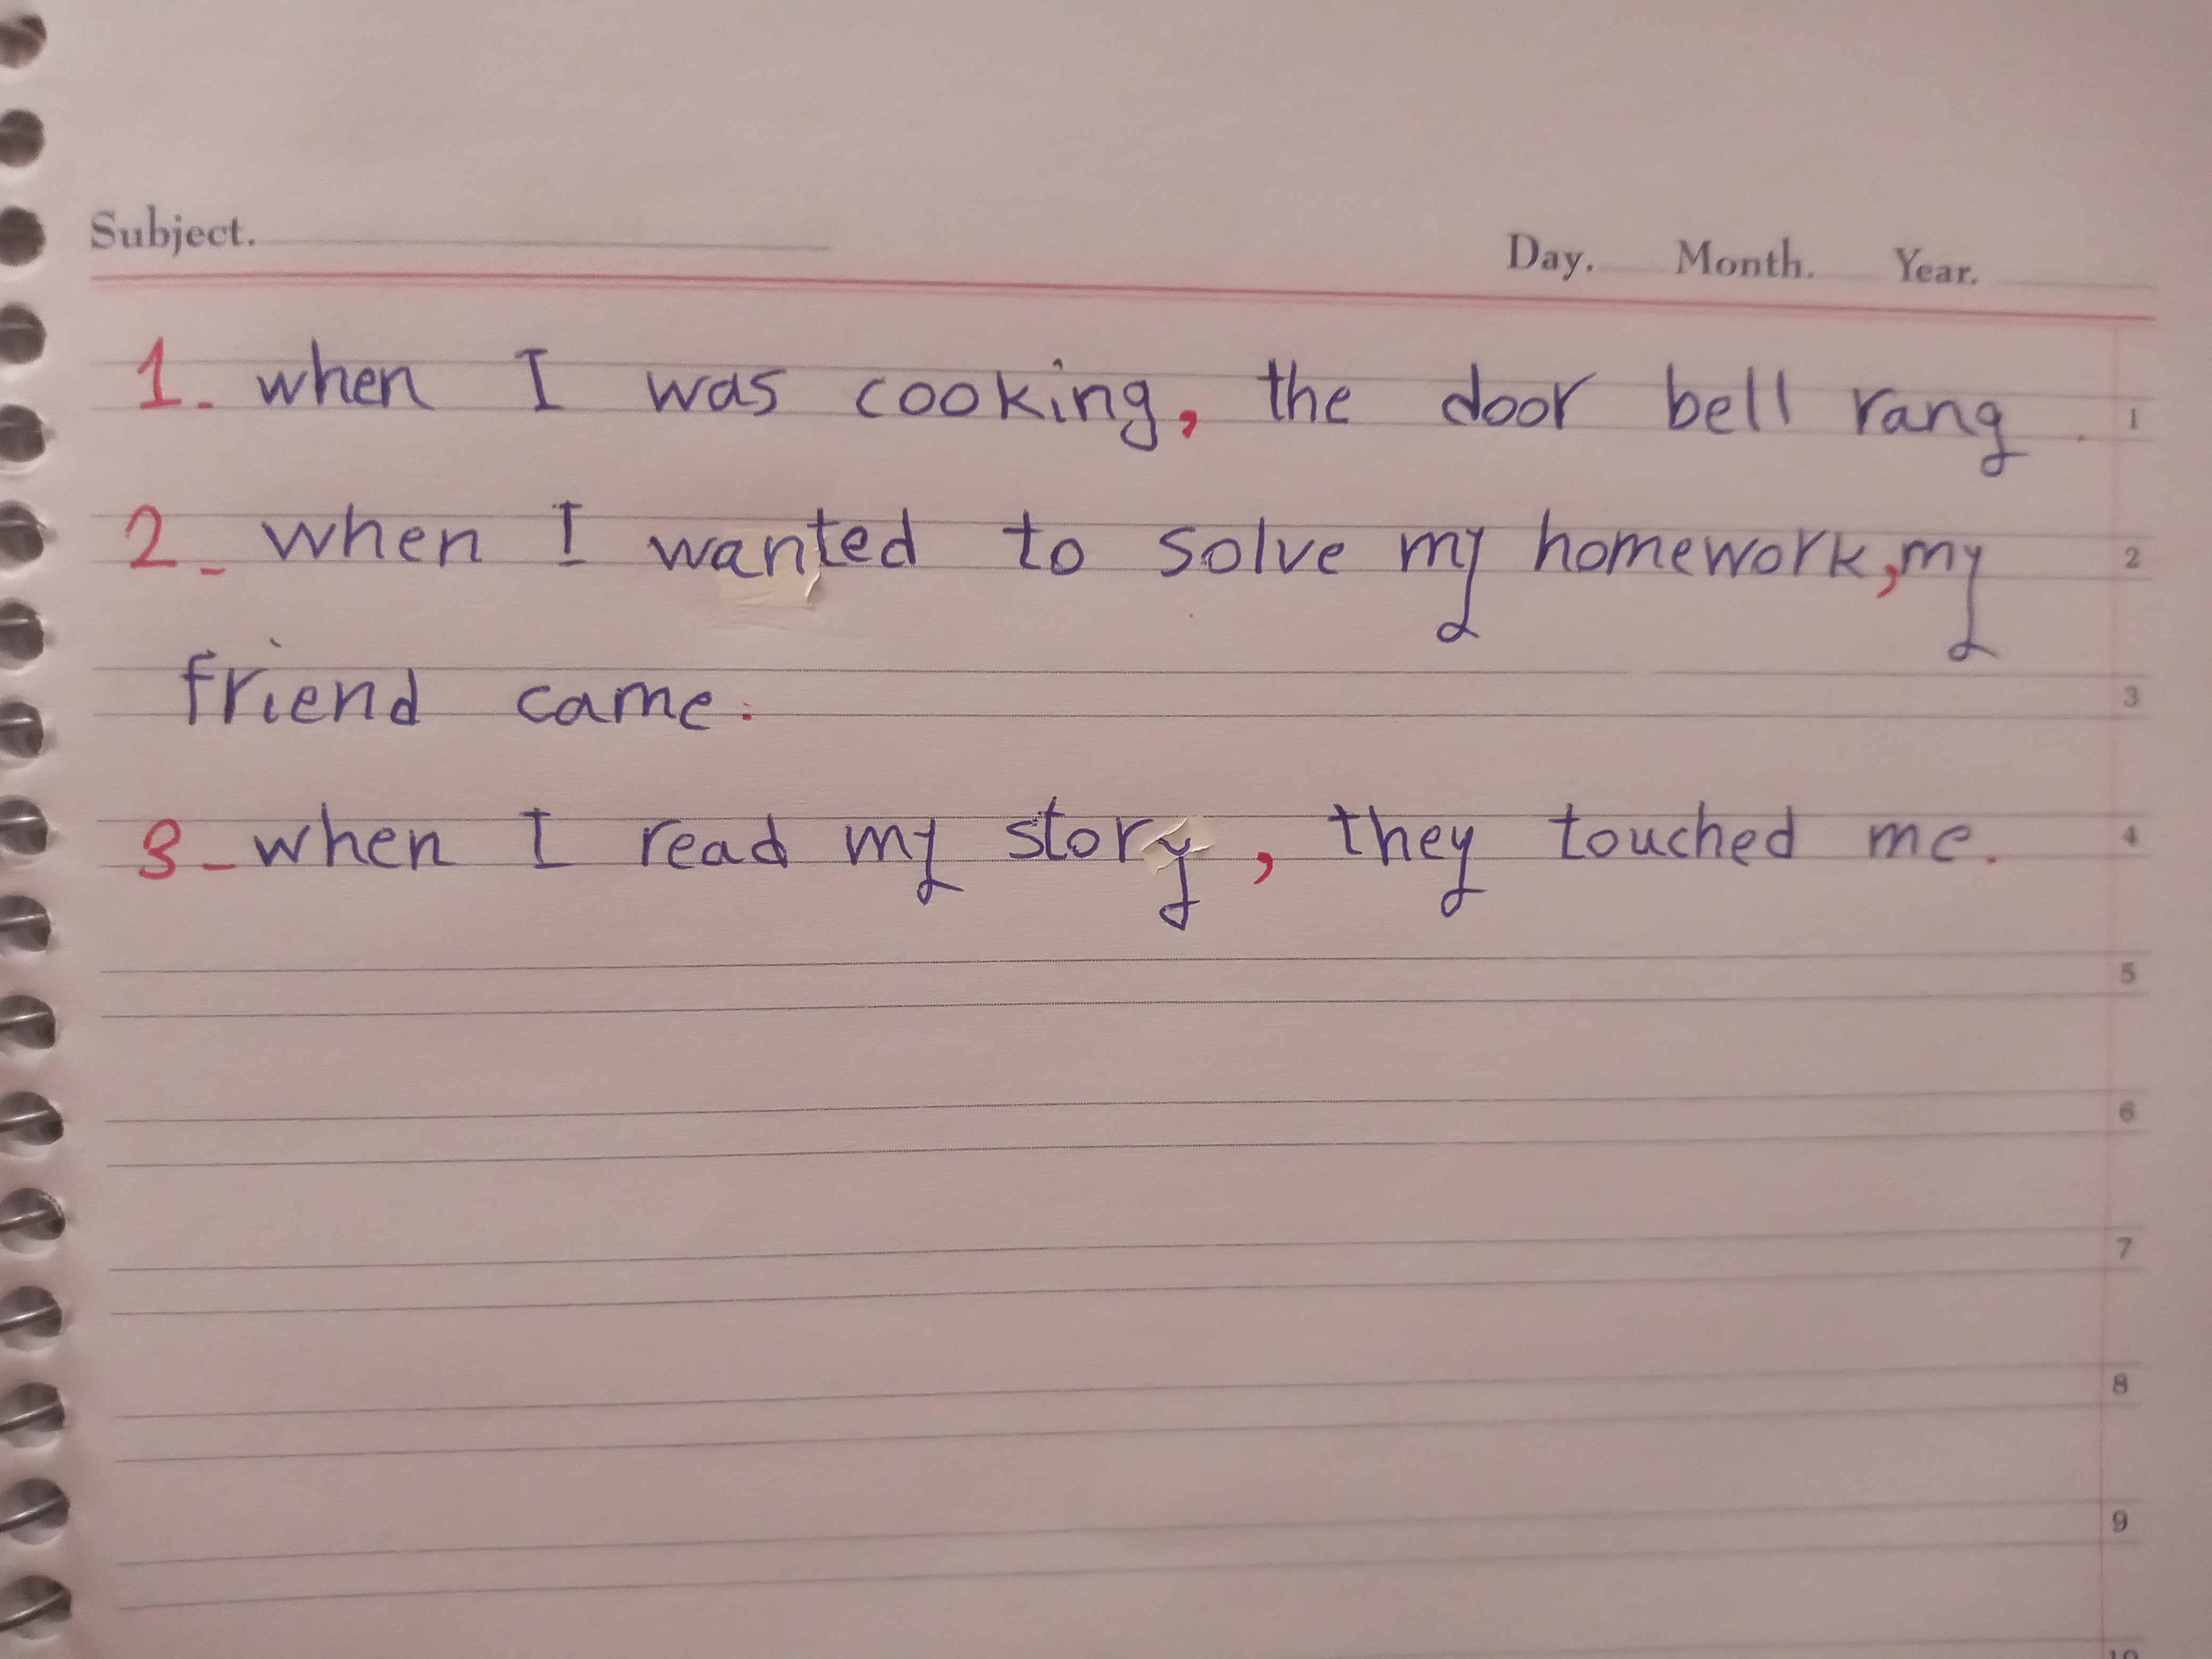 Subject.
Day. Month. Year.
1- when I was cooking, the door bell rang . 1
2- when I wanted to solve my homework, my 2
friend came. 3
3- when I read my story, they touched me. 4
5
6
7
8
9